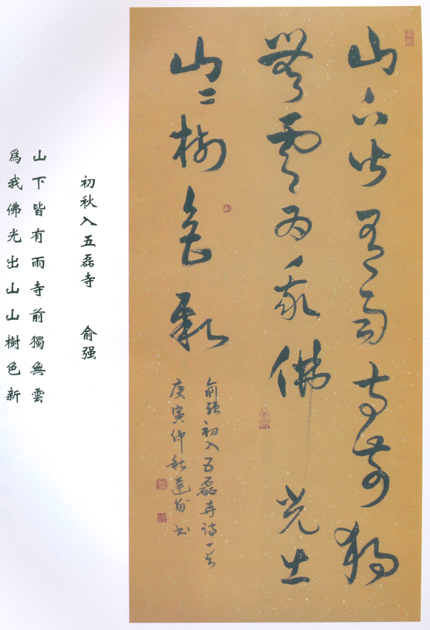 山下皆有雨寺前獨
無雲為我佛光出
山山樹色新
俞強初入五磊寺詩一首
庚寅仲秋蓮翁書
初秋入五磊寺　俞强
山下皆有雨寺前獨無雲
為我佛光出山山樹色新